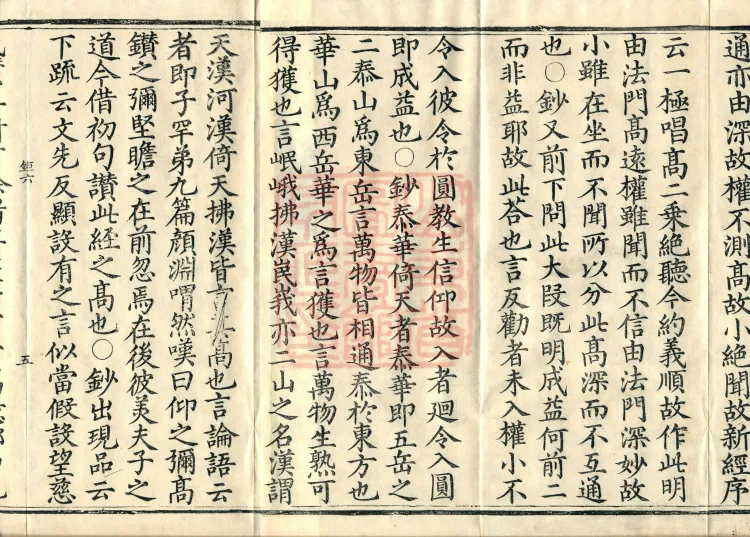 通亦由深故權不測高故小絕聞故新經序
云一極唱高二乗絶聽今約義順故作此明
由法門高遠權雖聞而不信由法門深妙故
小雖在坐而不聞所以分此高深而不互通
也〇鈔又前下問此大段既明成益何前二
而非益耶故此荅也言反勸者未入權小不
令入彼令於圓教生信仰故入者廻令入圓
即成益也〇鈔泰華倚天者泰華即五岳之
二泰山爲東岳言萬物皆相通泰於東方也
華山爲西岳華之爲言獲也言萬物生熟可
得獲也言岷峨拂漢崑峩亦二山之名漢謂
天漢河漢倚天拂漢皆言其高也言論語云
者即子罕弟九篇顔淵喟然嘆曰仰之彌高
鑚之彌堅瞻之在前忽焉在後彼美夫子之
道今借初句讃此經之高也〇鈔出現品云
下䟽云文先反顯設有之言似當假設望慈
鉅六
五